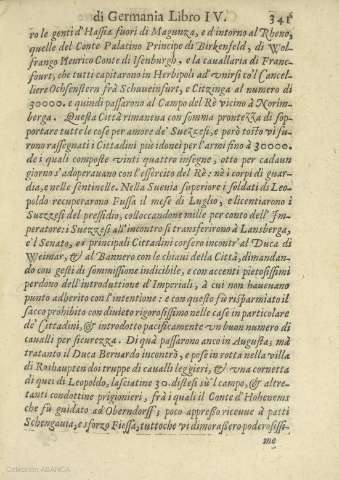 di Germania Libro IV. 341
ro le genti d'Hassia fuori di Magunza, e d'intorno al Rheno,
quelle del Conte Palatino Principe di Birkenfeld, di Wol-
frango Henrico Conte di Isenburgh, e la cavallaria di Franc-
fourt, che tutti capitarono in Herbipoli ad unirsi co'l Cancel-
liere Ochsenstern frà Schaueinfurt, e Citzinga al numero di
30000. e quindi passarono al Campo del Rè vicino à Norim-
berga. Questa Città rimaneua con somma prontezza di sop-
portare tutte le cose per amore de' Suezzesi, e però tosto vi fu-
rono rassegnati i Cittadini più idonei per l'armi sino à 30000.
de i quali composte vinti quattro insegne, otto per cadaun
giorno s'adoperauano con l'essercito del Rè: nè i corpi di guar-
dia, e nelle sentinelle. Nella Sueuia superiore i soldati di Leo-
poldo recuperarono Fussa il mese di Luglio, e licentiarono i
Suezzesi del pressidio, colloccandone mille per conto dell'Im-
peratore: i Suezzesi all'incontro si transferirono à Lansberga,
e'l Senato, e i principali Cittadini corsero incontr'al Duca di
Weimar, & al Bannero con le chiaui della Città, dimandan-
do con gesti di sommissione indicibile, e con accenti pietosissimi
perdono dell'introduttione d'Imperiali, à cui non haueuano
punto adherito con l'intentione: e con questo fù risparmiato il
sacco prohibito con diuieto rigorosissimo nelle case in particolare
de' Cittadini, & introdotto pacificamente vn buon numero di
caualli per sicurezza. Di quà passarono anco in Augusta; mà
tratanto il Duca Bernardo incontrò, e pose in rotta nella villa
di Roshaupten doi truppe di caualli leggieri, & vna cornetta
di quei di Leopoldo, lasciatine 30. distesi sù'l campo, & altre-
tanti condottine prigionieri, frà i quali il Conte d'Hohenems
che fù guidato ad Oberndorff; poco appresso riceuue à patti
Schengauia, e sforzo Fiessa, tuttoche vi dimorassero poderosisse-
me
Colección ABANCA